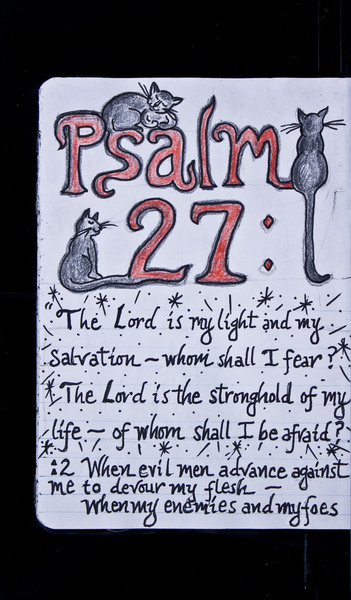 Psalm
27:1
"The Lord is my light and my
Salvation ~ whom shall I fear?
The Lord is the stronghold of my
life ~ of whom shall I be afraid?
:2 When evil men advance against
me to devour my flesh ~
when my enemies and my foes